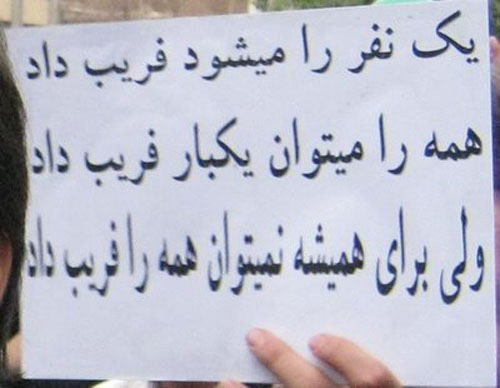 یک نفر را میشود فریب داد
همه را میتوان یکبار فریب داد
ولی برای همیشه نمیتوان همه را فریب داد